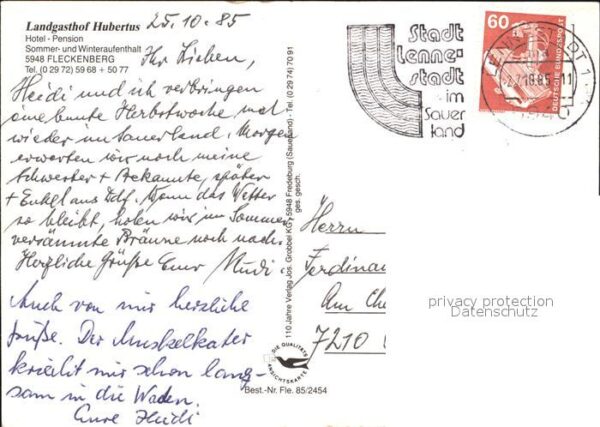 Landgasthof Hubertus
Hotel - Pension
Sommer- und Winteraufenthalt
5948 FLECKENBERG
Tel. (0 29 72) 59 68 + 50 77
25.10.85
Ihr Lieben,
Heidi und ich verbringen
eine bunte Herbstwoche mal
wieder im Sauerland. Morgen
erwarten wir noch meine
Schwester + Bekannte, später
+ Enkel aus Ddf. Wenn das Wetter
so bleibt, holen wir im Sommer
versäumte Bräune noch nach.
Herzliche Grüße Eure Mudi.
Auch von mir herzliche
Grüße. Der Muskelkater
kriecht mir schon lang-
sam in die Waden.
Eure Heidi
110 Jahre Verlag Jos. Grobbel KG · 5948 Fredeburg (Sauerland) - Tel. (0 29 74) 70 91
ges. gesch.
DIE QUALITÄTS
ANSICHTSKARTE
Best.-Nr. Fle. 85/2454
Stadt
Lenne-
stadt
im
Sauer
land
60
DEUTSCHE BUNDESPOST
LENNESTADT 1
Herrn
Ferdina
Am
7210
privacy protection
Datenschutz